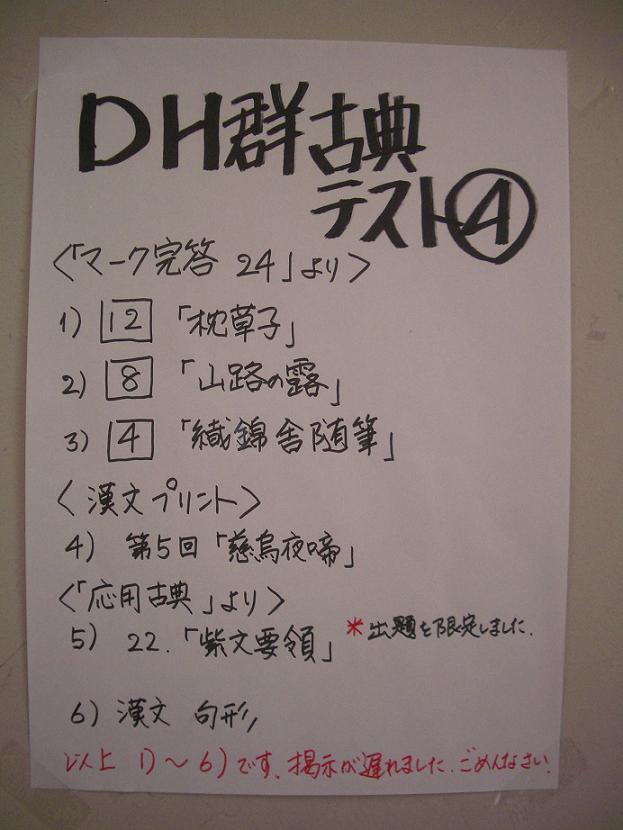 DH群古典
テスト④
〈「マーク完答 24」より〉
1) 12 「枕草子」
2) 8 「山路の露」
3) 4 「織錦舎随筆」
〈漢文プリント〉
4) 第5回「慈烏夜啼」
〈「応用古典」より〉
5) 22.「紫文要領」 *出題を限定しました.
6) 漢文 句形
以上 1)～6)です、掲示が遅れました.ごめんなさい.